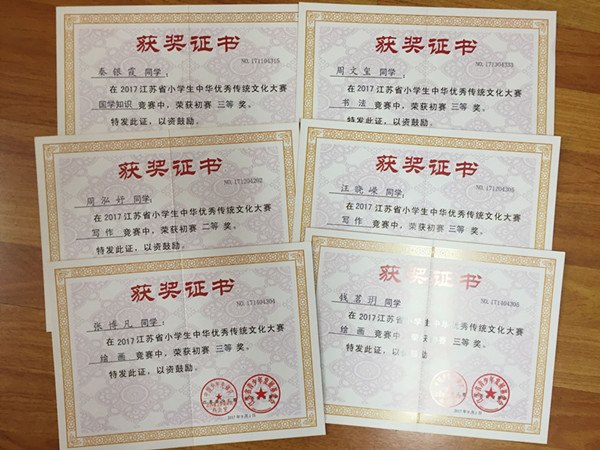 获奖证书
NO. 171104315
秦银霞 同学：
在2017江苏省小学生中华优秀传统文化大赛
国学知识 竞赛中，荣获初赛 三等 奖。
特发此证，以资鼓励。
获奖证书
NO. 171304333
周文玺 同学：
在2017江苏省小学生中华优秀传统文化大赛
书法 竞赛中，荣获初赛 三等 奖。
特发此证，以资鼓励。
获奖证书
NO. 171204292
周泓妤 同学：
在2017江苏省小学生中华优秀传统文化大赛
写作 竞赛中，荣获初赛 二等 奖。
特发此证，以资鼓励。
获奖证书
NO. 171204305
汪晓嵘 同学：
在2017江苏省小学生中华优秀传统文化大赛
写作 竞赛中，荣获初赛 三等 奖。
特发此证，以资鼓励。
获奖证书
NO. 171404304
张博凡 同学：
在2017江苏省小学生中华优秀传统文化大赛
绘画 竞赛中，荣获初赛 三等 奖。
特发此证，以资鼓励。
获奖证书
NO. 171404308
钱茗玥 同学
在2017江苏省小学生中华优秀传统文化大赛
绘画 竞赛中，荣获初赛 三等 奖。
特发此证，以资鼓励。